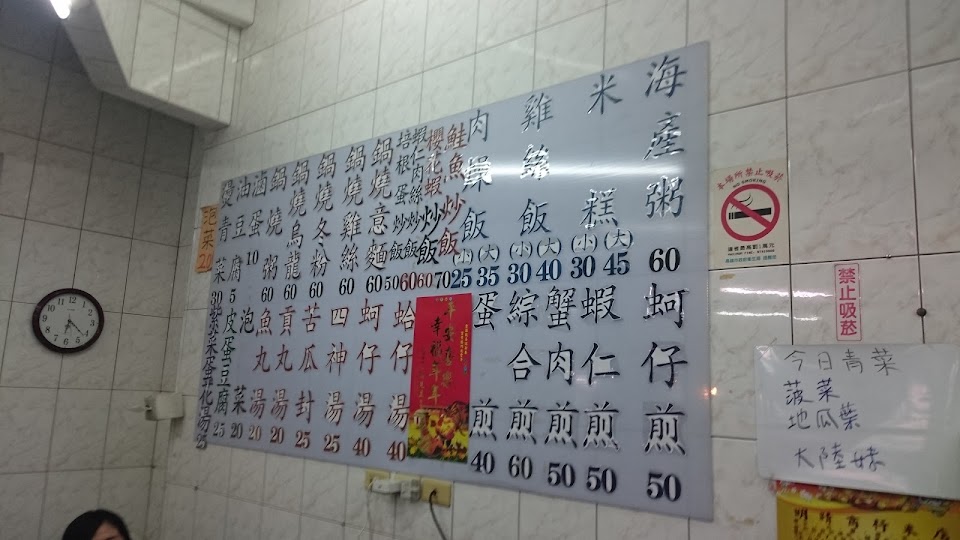 海產粥 60
米糕 (小)30 (大)45
雞絲飯 (小)30 (大)40
肉燥飯 (小)25 (大)35
鮭魚炒飯 70
櫻花蝦炒飯 60
蝦仁肉絲炒飯 60
培根蛋炒飯 50
鍋燒意麵 60
鍋燒雞絲 60
鍋燒冬粉 60
鍋燒烏龍 60
鍋燒粥 60
滷蛋 10
油豆腐 5
燙青菜 30
泡菜20
蚵仔煎 50
蝦仁煎 50
蟹肉煎 50
綜合煎 60
蛋煎 40
蛤仔湯 40
蚵仔湯 40
四神湯 25
苦瓜封 25
貢丸湯 20
魚丸湯 20
泡菜 20
皮蛋豆腐 20
紫菜蛋花湯 25
本場所禁止吸菸
NO SMOKING
禁止吸菸
今日青菜
菠菜
地瓜葉
大陸妹